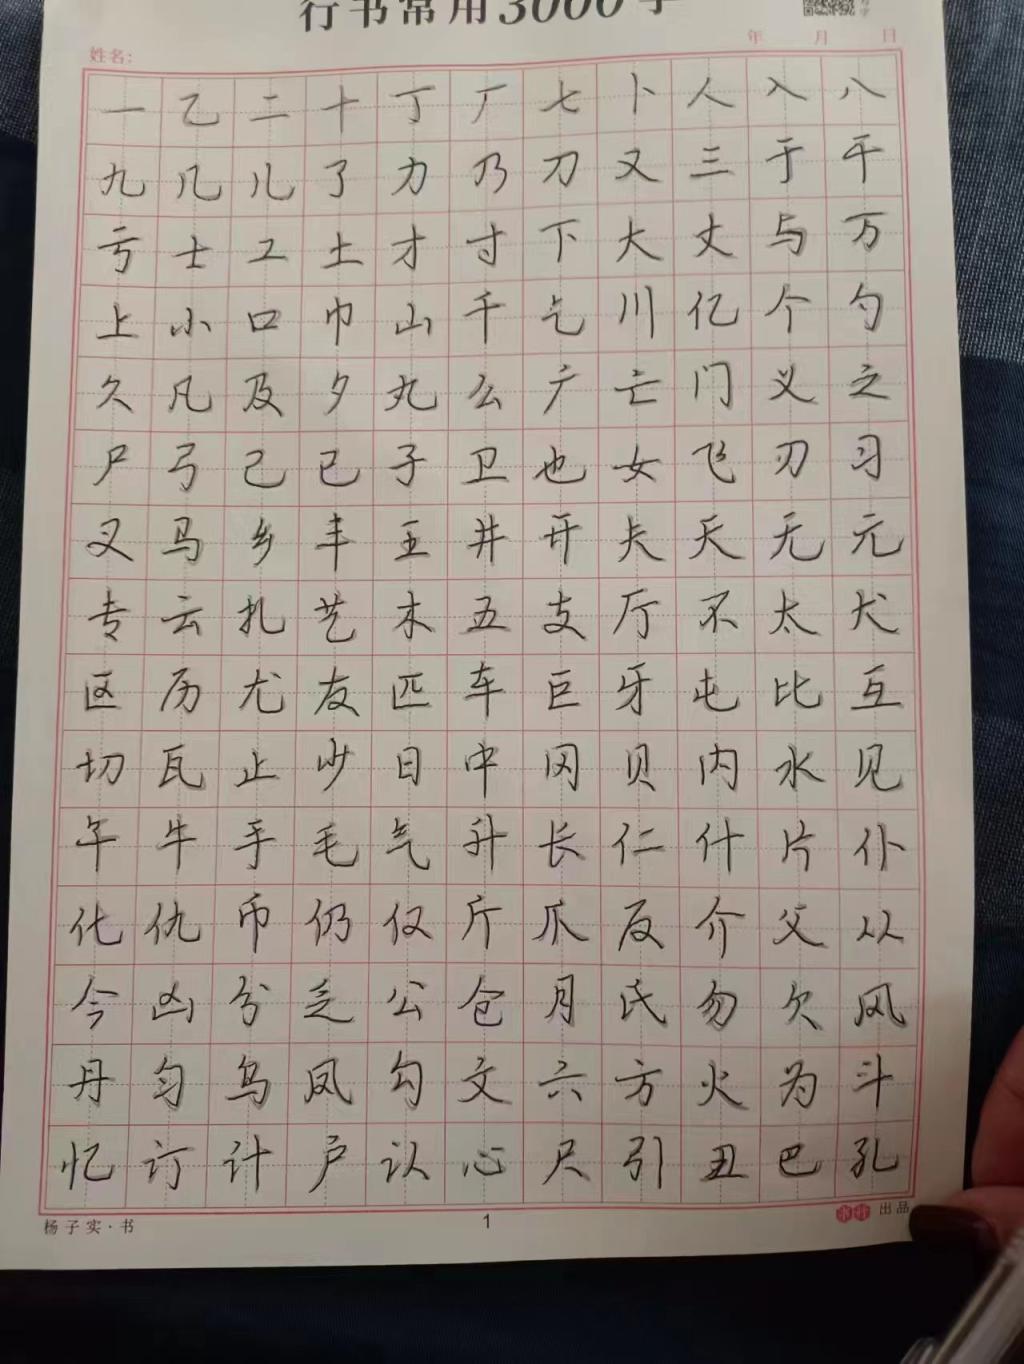 行书常用3000字
姓名: 年 月 日
一乙二十丁厂七卜人入八
九几儿了力乃刀又三于干
亏士工土才寸下大丈与万
上小口巾山千乞川亿个勺
久凡及夕丸么广亡门义之
尸弓己已子卫也女飞刃习
叉马乡丰王井开夫天无元
专云扎艺木五支厅不太犬
区历尤友匹车巨牙屯比互
切瓦止少日中冈贝内水见
午牛手毛气升长仁什片仆
化仇币仍仅斤爪反介父从
今凶分乏公仓月氏勿欠风
丹匀乌凤勾文六方火为斗
忆订计户认心尺引丑巴孔
杨子实·书 1 出品